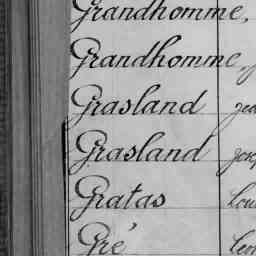 Grandhomme,
Grandhomme,
Grasland
Grasland
Gratas
Gré